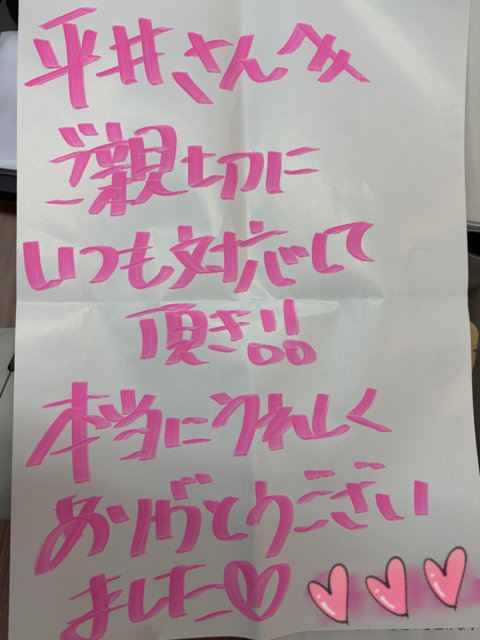 平井さんへ
ご親切に
いつも対応して
頂き!!
本当にうれしく
ありがとうござい
ました♡